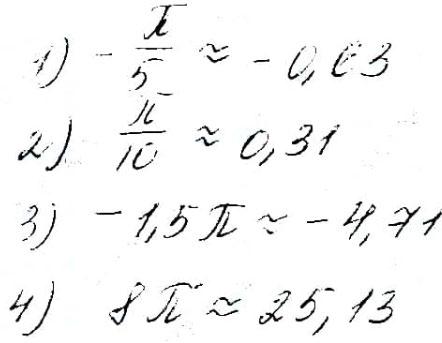 1) -π/5 ≈ -0,63
2) π/10 ≈ 0,31
3) -1,5π ≈ -4,71
4) 8π ≈ 25,13